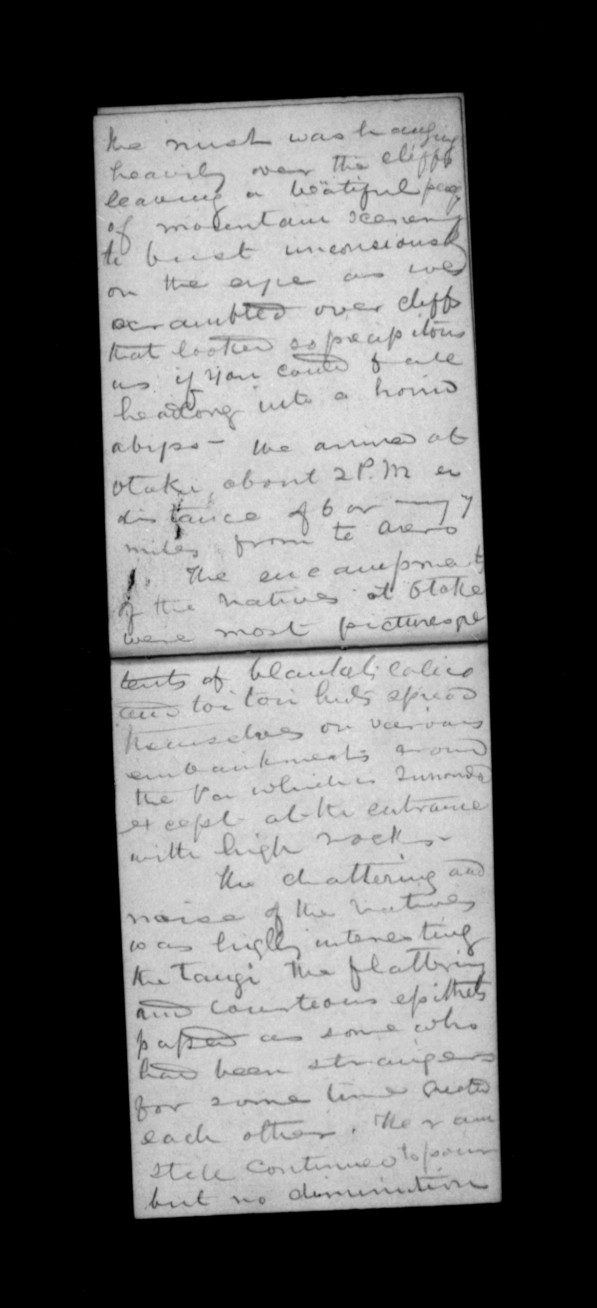 the mist was hanging
heavily over the cliffs
leaving a beatiful page
of mountain scenery
to bust unconsiously
on the eye as we
scrambled over cliffs
that looked so precipitous
as if you could fall
headlong into a horrid
abyss - We arrived at
Otake, about 2 P.M
distance of 6 or 7
miles from te
The encampments
of the natives at Otake
were most picturesque
tents of blankets calico
and toi toi huts spread
themselves on various
embankments around
the Pa which is surrounded
except at the entrance
with high rocks -
The chattering and
noise of the natives
was highly interesting
the tangi the flattering
and courteous epithets
passed as some who
had been strangers
for some time
each other. The rain
still continued to pour
but no diminution